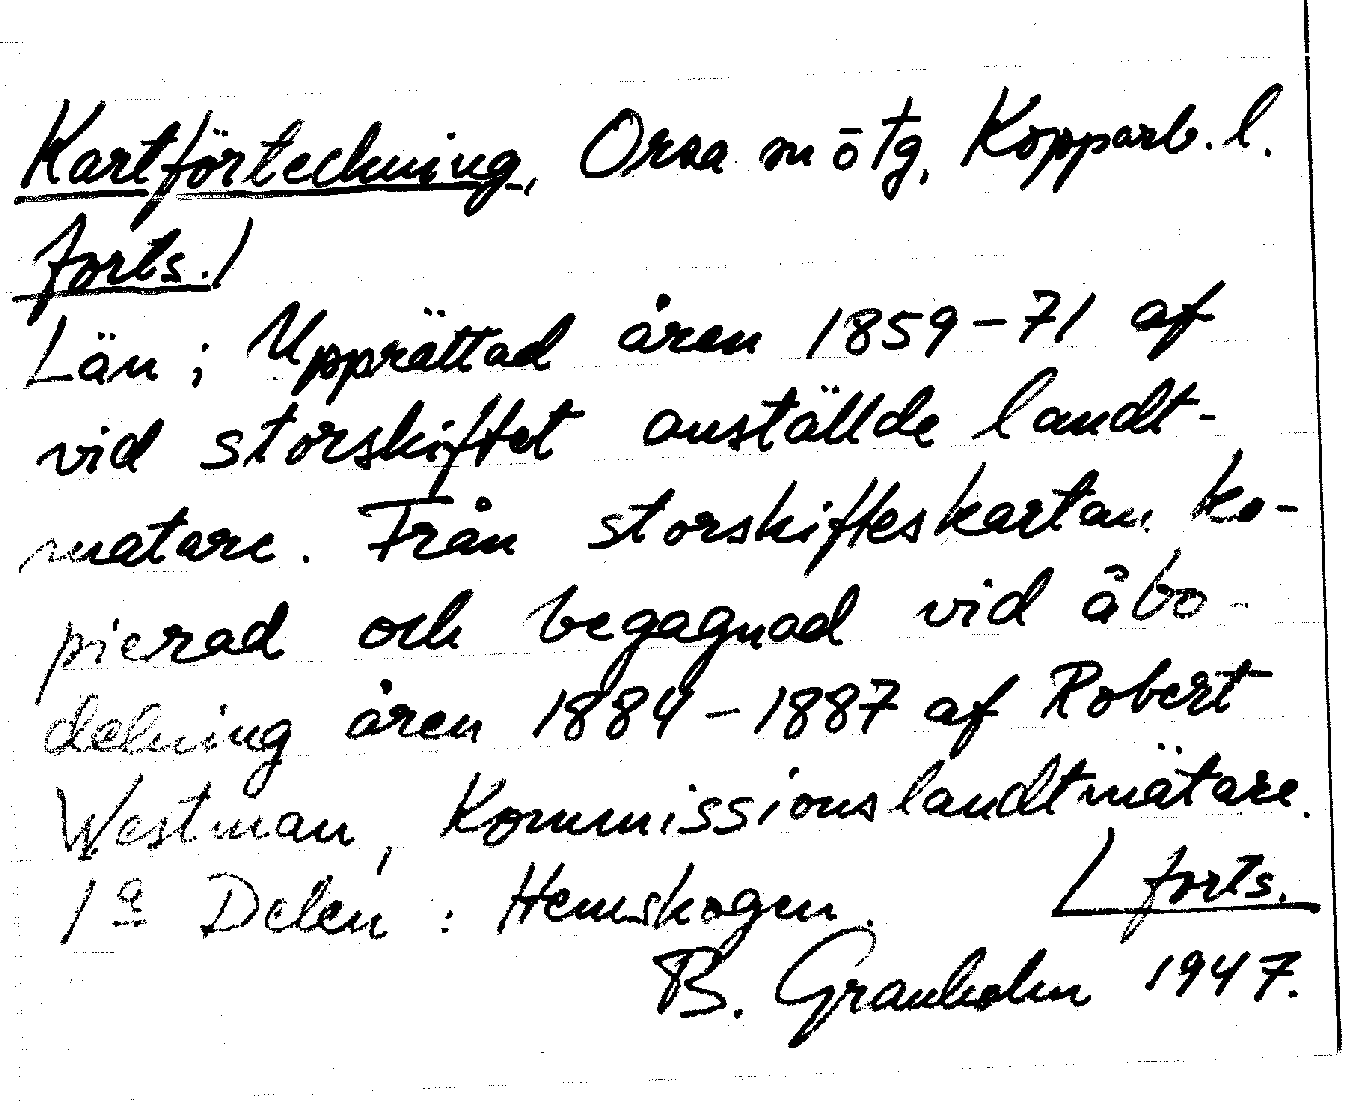 Kartförteckning, Orsa m ō tg, Kopparb. l.
forts./
Län; Upprättad åren 1859-71 af
vid storskiftet anställde landt-
mätare. Från storskifteskartan ko-
pierad och begagnad vid åbo-
delning åren 1884-1887 af Robert
Westman, Kommissionslandtmätare.
1a Delen: Hemskogen. / forts.
B. Granholm 1947.